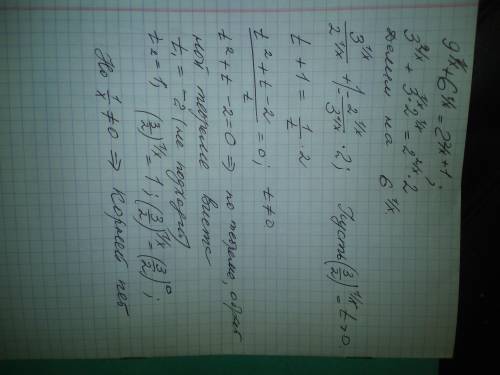 9^{1/x} + 6^{1/x} = 2^{2/x + 1};
3^{2/x} + 3^{1/x}·2^{1/x} = 2^{2/x}·2
делим на 6^{1/x}
3^{1/x}/2^{1/x} + 1 = 2^{1/x}/3^{1/x} · 2; Пусть (3/2)^{1/x} = t > 0
t + 1 = 1/t · 2
(t² + t - 2)/t = 0; t ≠ 0
t² + t - 2 = 0 ⇒ по теореме, обрат
ной теореме Виета
t₁ = -2 (не подходит)
t₂ = 1; (3/2)^{1/x} = 1; (3/2)^{1/x} = (3/2)^0;
Но 1/x ≠ 0 ⇒ Корней нет